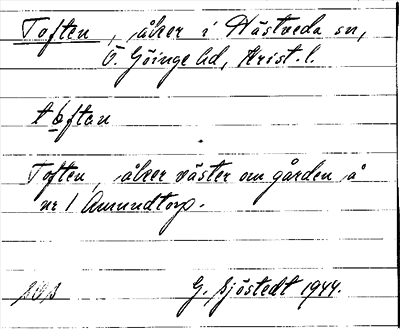 Toften, åker i Hästveda sn,
Ö. Göinge hd, Krist. l.
tòftan
Toften, åker väster om gården å
nr 1 Amundtorp.
G. Sjöstedt 1944.